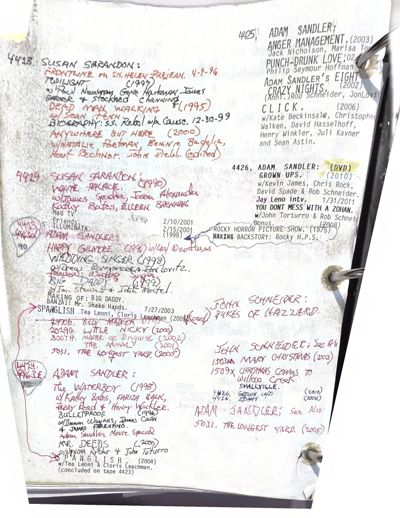 4428 SUSAN SARANDON:
FRONTLINE ON SIS. HELEN PREJEAN. 4-9-96
TWILIGHT (1997)
w/Paul Newman, Gene Hackman, James
Garner & Stockard Channing
DEAD MAN WALKING (1995)
w/ Sean Penn
BIOGRAPHY: S.S. Rebel w/a Cause. 12-30-99
ANYWHERE BUT HERE (2000)
w/Natalie Portman, Bonnie Bedelia,
4429 SUSAN SARANDON:
WHITE PALACE. (1990)
w/James Spader, Jason Alexander
Kathy Bates, Eileen Brennan
Mad TV
Friends 2/10/2001
ILLUMINATA 2/15/2001
(1998)
ADAM SANDLER:
HAPPY GILMORE (96)
WEDDING SINGER (1998)
w/Drew Barrymore & Jon Lovitz.
BIG DADDY (1999)
w/Jon Stewart &
MAKING OF: BIG DADDY.
BANZAI! Mr. Shake Hands. 7/27/2003
SPANGLISH Tea Leoni, Cloris Leachman
BILLY MADISON
LITTLE NICKY (2000)
MASTER OF DISGUISE (2002)
THE ANIMAL (2001)
5031. THE LONGEST YARD (2005)
ADAM SANDLER:
The WATERBOY (1998)
w/Kathy Bates, FAIRUZA BALK,
Jerry Reed & Henry Winkler.
BULLETPROOF (1996)
w/Damon Wayans, James Caan
& JAMES FARENTINO
MR. DEEDS (2002)
w/WINONA Ryder & John Turturro
SPANGLISH. (2004)
w/Tea Leoni & Cloris Leachman.
(concluded on tape 4423)
4425, ADAM SANDLER:
ANGER MANAGEMENT. (2003)
Jack Nicholson, Marisa
PUNCH-DRUNK LOVE. 02
Philip Seymour Hoffman
ADAM SANDLER'S EIGHT
CRAZY NIGHTS. (2002)
Rob Schneider, Jon Lovitz
CLICK. (2006)
w/Kate Beckinsale, Christopher
Walken, David Hasselhoff,
Henry Winkler, Juli Kavner
and Sean Astin.
4426, ADAM SANDLER: (DVD)
GROWN UPS. (2010)
w/Kevin James, Chris Rock,
David Spade & Rob Schneider.
Jay Leno intv. 1/31/2011
YOU DONT MESS WITH A ZOHAN.
w/John Torturro & Rob Schneider
Bonus
ROCKY HORROR PICTURE SHOW. (1975)
MAKING BACKSTORY: Rocky H.P.S.
JOHN SCHNEIDER:
DUKES OF HAZZARD.
JOHN SCHNEIDER: See Als
MARY CHRISTMAS (2002)
CHRISTMAS COMES TO
Willow Creek
SMALLVILLE.
ADAM SANDLER: See Also
5031. THE LONGEST YARD (2005)